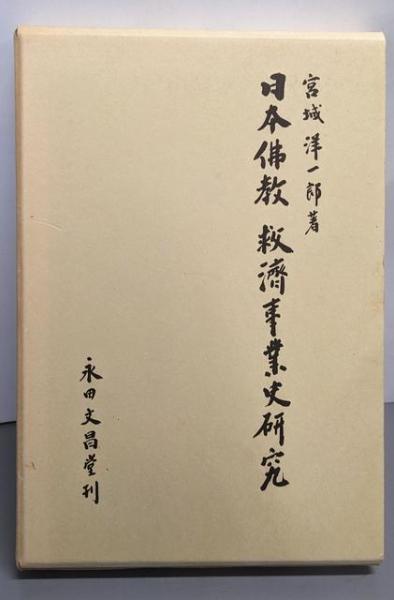 宮城洋一郎著
日本佛教救濟事業史研究
永田文昌堂刊